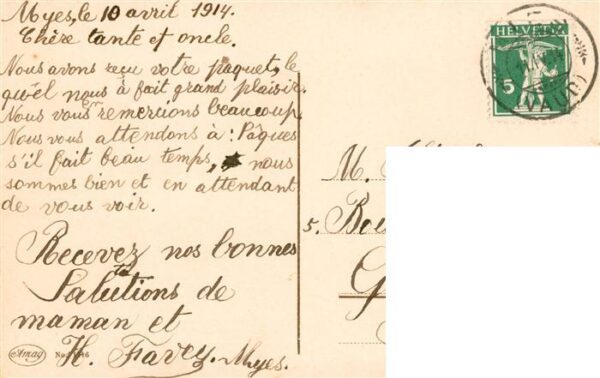 Myes, le 10 avril 1914.
Chère tante et oncle.
Nous avons reçu votre paquet, le
qu'el nous à fait grand plaisir.
Nous vous en remercions beaucoup
Nous vous attendons à : Pâques
s'il fait beau temps, nous
sommes bien et en attendant
de vous voir.
Recevez nos bonnes
Salutions de
maman et
H. Favez. Myes.
HELVETIA
5
VAUD
M.
5.
Amag
No.